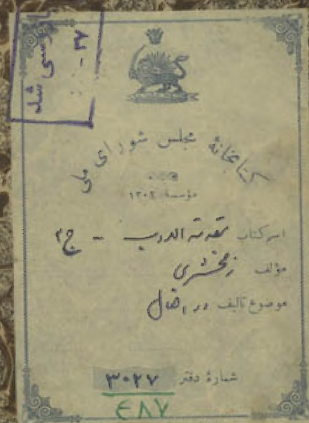 بازرسی شد
۲۷ -
کتابخانهٔ مجلس شورای ملی
مؤسسهٔ ۱۳۰۲
اسم کتاب مقدمة الادب - ج ۲
مؤلف زمخشری
موضوع تألیف در افعال
شمارهٔ دفتر ۳۰۲۷
۴۸۷